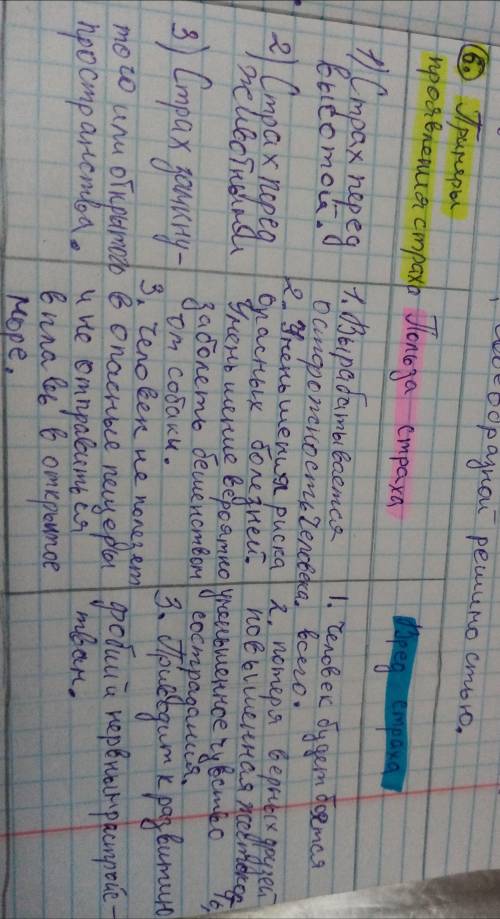 образной решимостью.
6. Примеры
проявления страха
1) Страх перед
высотой.
2) Страх перед
животными
3) Страх замкну-
того или открытого
пространства.
Польза страха
1. Вырабатывается
осторожность человека.
2. Уменьшения риска
опасных болезней.
Уменьшение вероятно
заболеть бешенством
от собаки.
3. Человек не полезет
в опасные пещеры
и не отправиться
вплавь в открытое
море.
Вред страха
1. Человек будет боятся
всего.
2. потеря верных друзей
повышенная жестокость,
уменьшенное чувство
сострадания.
3. Приводит к развитию
фобий и нервным растройс-
твам.